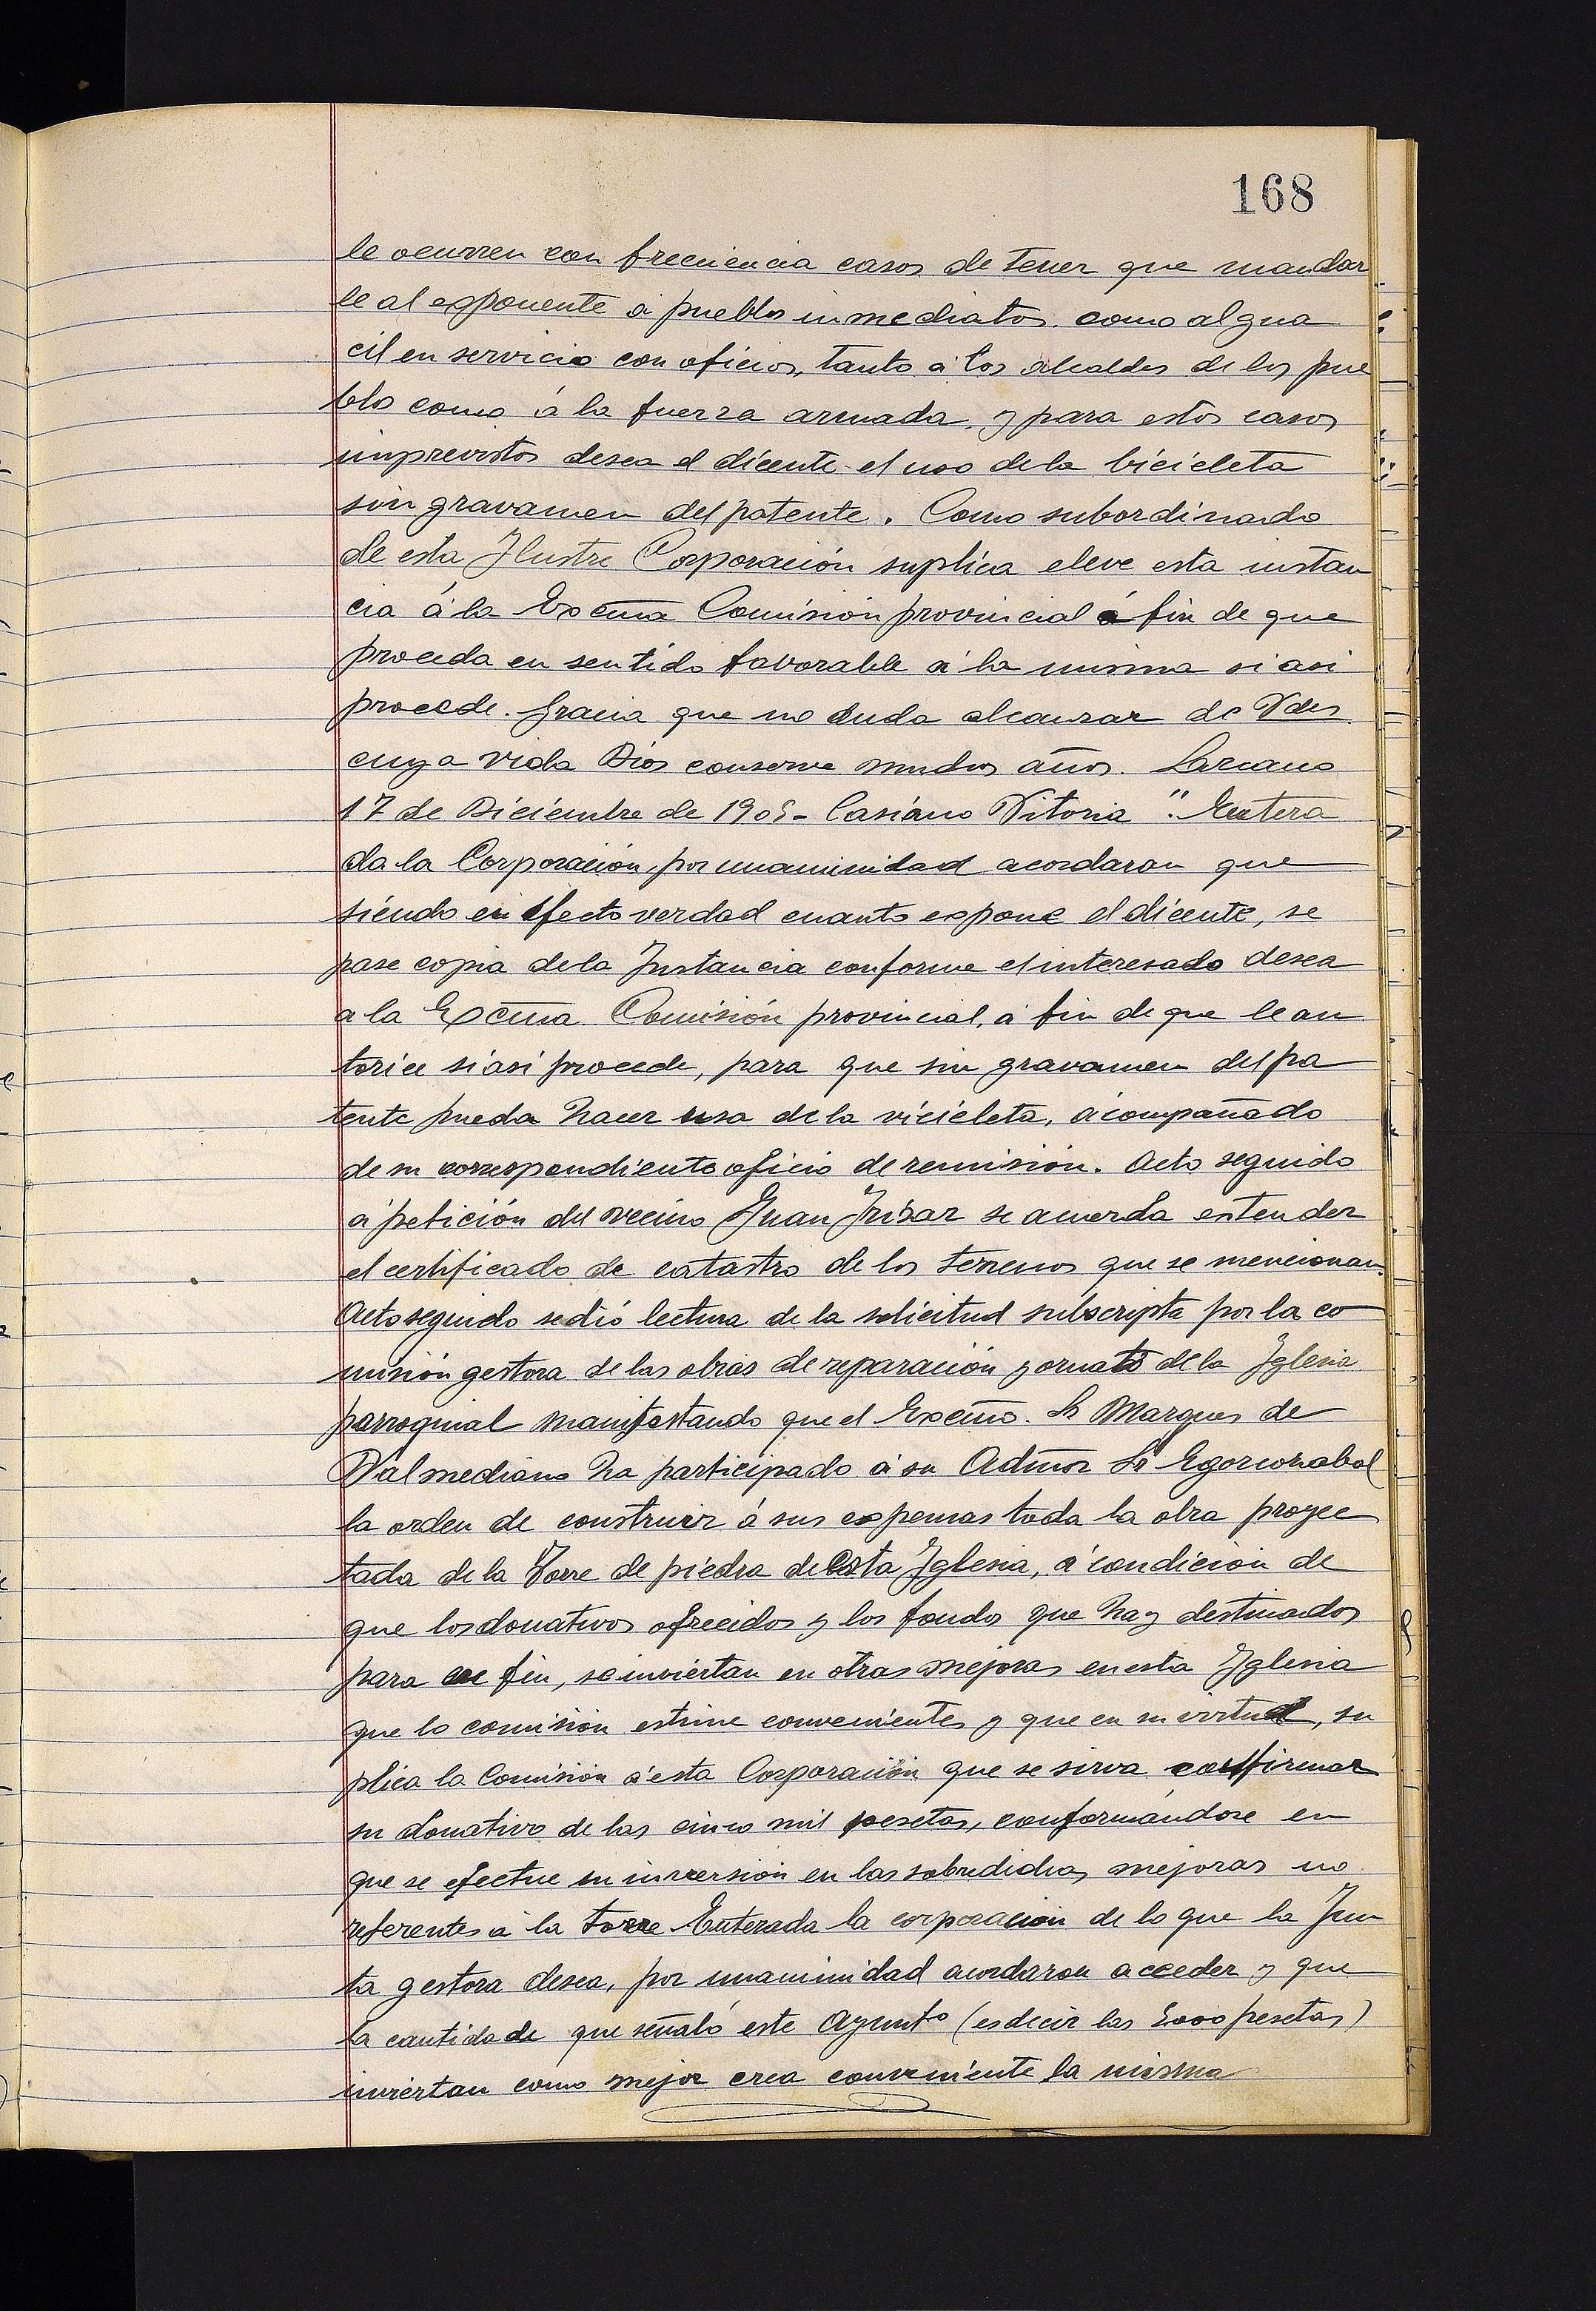 168
le ocurren con frecuencia casos de tener que mandar
le al exponente á pueblos inmediatos como algua
cil en servicio con oficios, tanto á los alcaldes de los pue
blo como á la fuerza armada, y para estos casos
imprevistos desea el dicente el uso de la bicicleta
sin gravamen del patente. Como subordinado
de esta Ilustre Corporación suplica eleve esta instan
cia á la Excma Comisión provincial á fin de que
proceda en sentido favorable á la misma si asi
procede. Gracia que no duda alcanzar de Vdes
cuya vida Dios conserve muchos años. Lazcano
17 de Diciembre de 1905 - Casiano Vitoria". Entera
da la Corporación, por unanimidad acordaron que
siendo en efecto verdad cuanto expone el dicente, se
pase copia de la Instancia conforme el interesado desea
a la Excma Comisión provincial, á fin de que le au
torice si asi procede, para que sin gravamen del pa
tente pueda hacer uso de la vicicleta, acompañado
de su correspondiente oficio de remisión. Acto seguido
á petición del vecino Juan Irizar se acuerda estender
el certificado de catastro de los terrenos que se mencionan.
Acto seguido se dió lectura de la solicitud subscripta por la co
misión gestora de las obras de reparación y ornato de la Iglesia
parroquial manifestando que el Excmo. Sr Marques de
Valmediano ha participado á su Admor Sr Egorcozabal
la orden de construir á sus expensas toda la obra proyec
tada de la Torre de piedra de esta Iglesia, á condición de
que los donativos ofrecidos y los fondos que hay destinados
para ese fin, se inviertan en otras mejoras en esta Iglesia
que la comisión estime convenientes y que en su virtud, su
plica la Comisión á esta Corporación que se sirva confirmar
su donativo de las cinco mil pesetas, conformándose en
que se efectue su inversión en las sobredichas mejoras no
referentes á la torre Enterada la corporación de lo que la Jun
ta gestora desea, por unanimidad acordaron acceder y que
la cantidad de que señaló este Ayunto (es decir las 5000 pesetas)
inviertan como mejor crea conveniente la misma